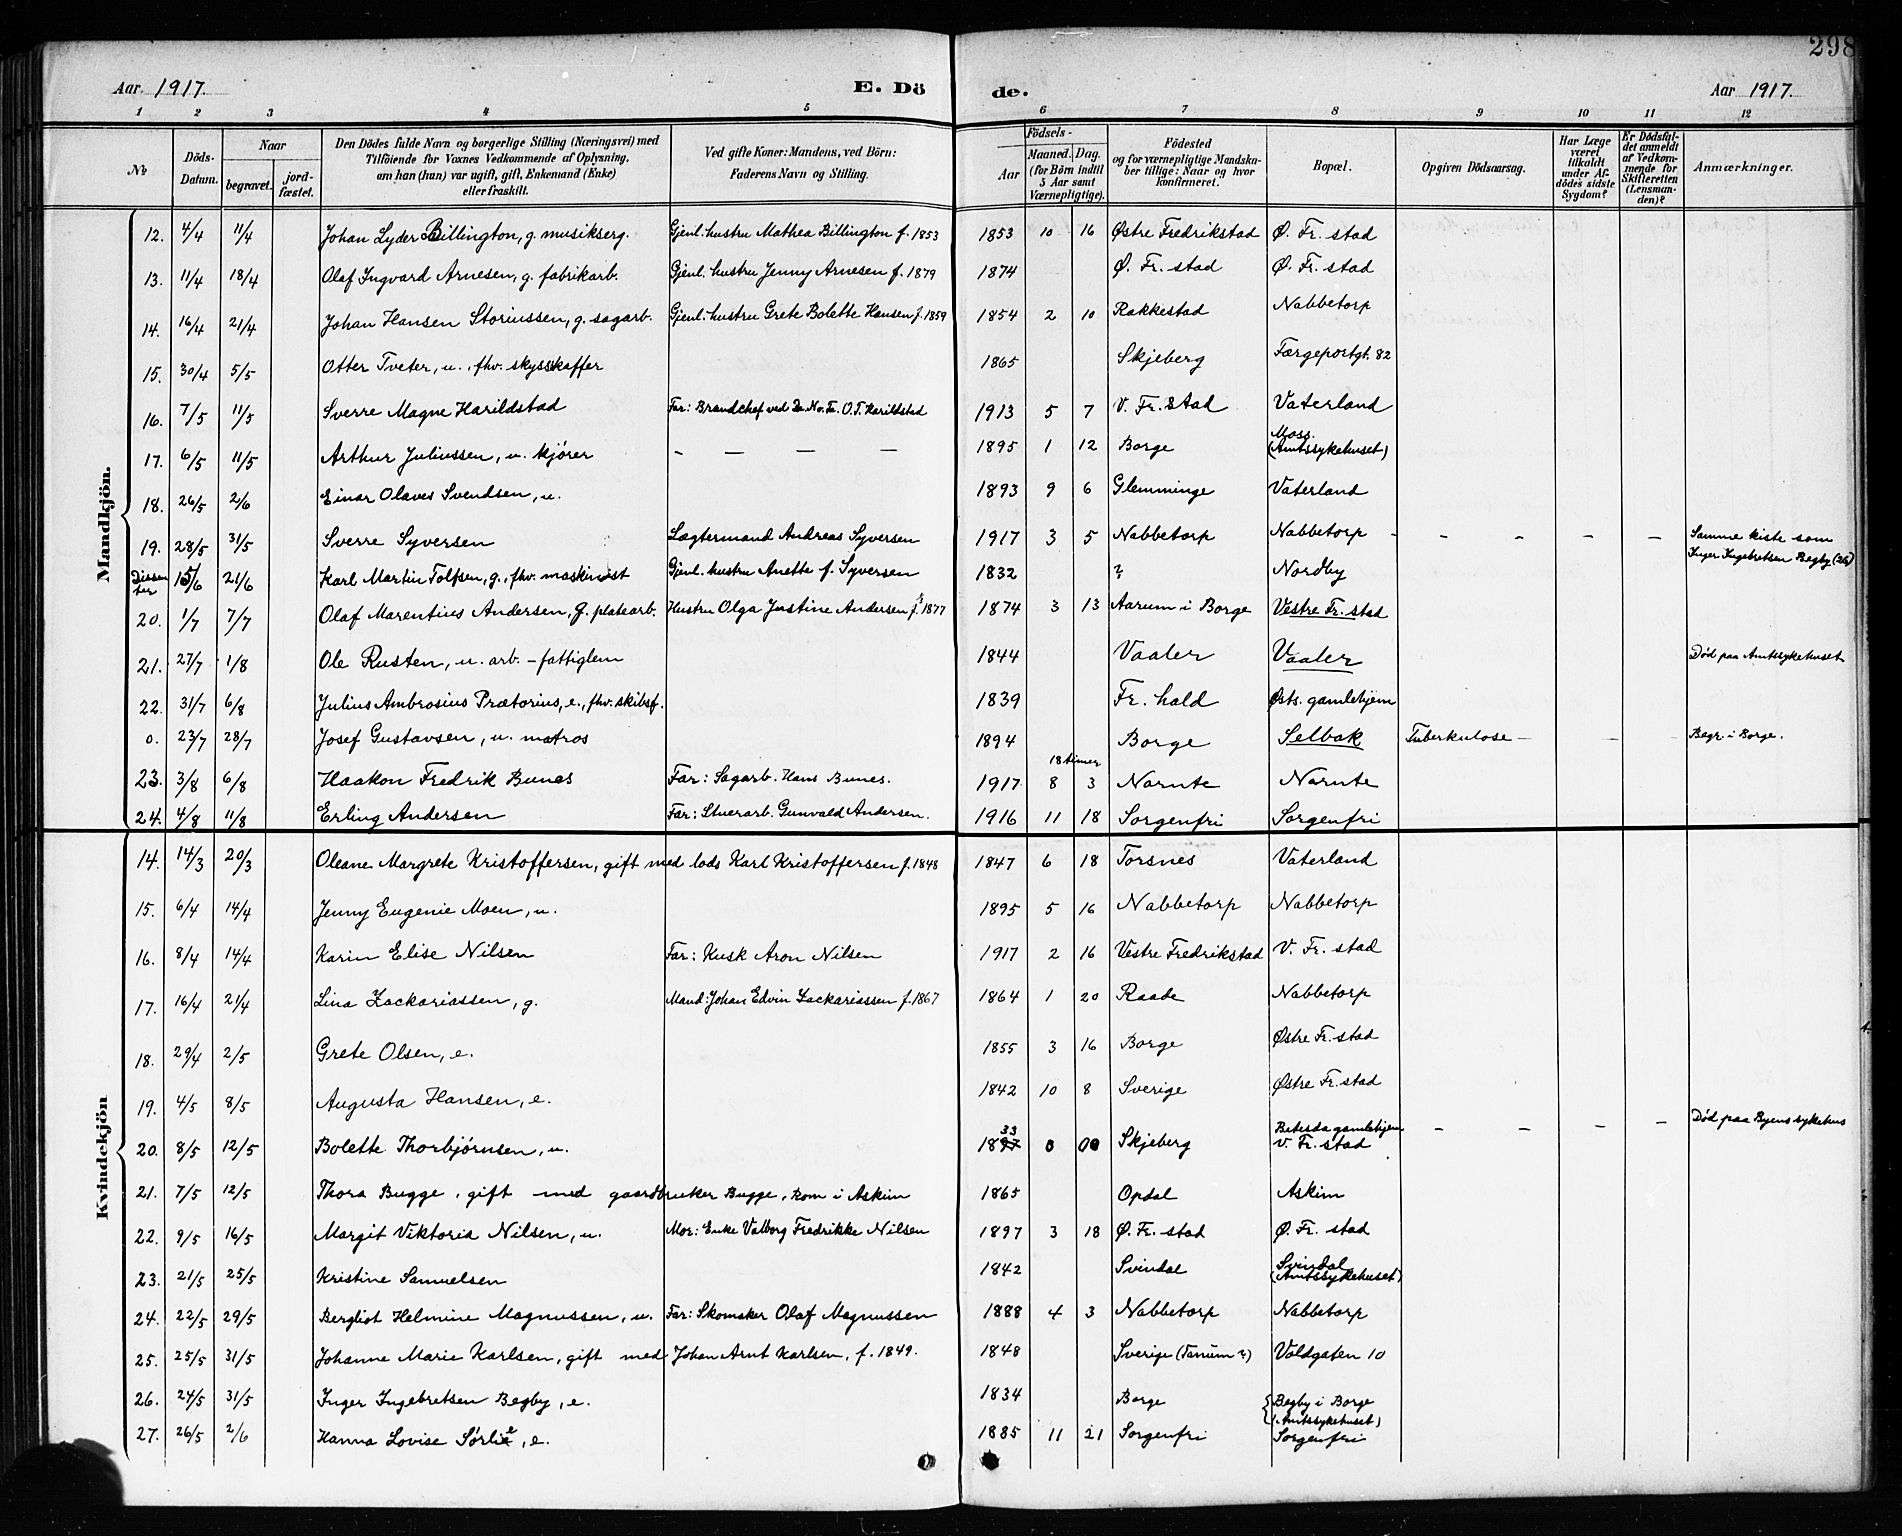 298
Aar 1917. E. Dö de. Aar 1917.
1 2 3 4 5 6 7 8 9 10 11 12
No Döds-Datum. Naar begravet. jord-fæstet. Den Dödes fulde Navn og borgerlige Stilling (Næringsvei) med Tilföiende for Voxnes Vedkommende af Oplysning, om han (hun) var ugift, gift, Enkemand (Enke) eller fraskilt. Ved gifte Koner: Mandens, ved Börn: Faderens Navn og Stilling. Födsels- Aar Maaned. Dag. (for Börn indtil 5 Aar samt Værnepligtige). Födested og for værnepligtige Mandska-ber tillige: Naar og hvor konfirmeret. Bopæl. Opgiven Dödsaarsag. Har Læge været tilkaldt under Af-dödes sidste Sygdom? Er Dödsfal-det anmeldt af Vedkom-mende for Skifteretten (Lensman-den)? Anmærkninger.
Mandkjön.
12. 4/4 11/4 Johan Lyder Billington, g. musikserg. Gjenl. hustru Mathea Billington f. 1853 1853 10 16 Østre Fredrikstad Ø. Fr. stad
13. 11/4 18/4 Olaf Ingvard Arnesen, g. fabrikarb. Gjenl. hustru Jenny Arnesen f. 1879 1874 Ø. Fr. stad Ø. Fr. stad
14. 16/4 21/4 Johan Hansen Storiussen, g. sagarb. Gjenl. hustru Grete Bolette Hansen f. 1859 1854 2 10 Rakkestad Nabbetorp
15. 30/4 5/5 Otter Tveter, u., fhv. skysskaffer 1865 Skjeberg Færgeportgt. 82
16. 7/5 11/5 Sverre Magne Harildstad Far: Brandchef ved De No. Fa. O. T. Harildstad 1913 5 7 V. Fr. stad Vaterland
17. 6/5 11/5 Arthur Juliussen, u. kjører - - - - 1895 1 12 Borge Moss. (Amtssykehuset)
18. 26/5 2/6 Einar Olaves Svendsen, u. 1893 9 6 Glemminge Vaterland
19. 28/5 31/5 Sverre Syversen Lægtermand Andreas Syversen 1917 3 5 Nabbetorp Nabbetorp - - - - - Samme kiste som Inger Ingebretsen Begby (26)
Dissenter 15/6 21/6 Karl Martin Tolfsen, g., fhv. maskinist Gjenl. hustru Anette f. Syversen 1832 ? Nordby
20. 1/7 7/7 Olaf Marentius Andersen, g. platearb. Hustru Olga Justine Andersen f. 1877 1874 3 13 Aarum i Borge Vestre Fr. stad
21. 27/7 1/8 Ole Rusten, u. arb. - fattiglem 1844 Vaaler Vaaler Død paa Amtssykehuset
22. 31/7 6/8 Julius Ambrosius Prætorius, e., fhv. skibsf. 1839 Fr. hald Østs. gamlehjem
0. 23/7 28/7 Josef Gustavsen, u. matros 1894 Borge Selbak Tuberkulose - - - Begr. i Borge.
23. 3/8 6/8 Haakon Fredrik Bunes Far: Sagarb. Hans Bunes. 1917 18 timer 8 3 Narnte Narnte
24. 4/8 11/8 Erling Andersen Far: Stuerarb. Gunvald Andersen. 1916 11 18 Sorgenfri Sorgenfri
Kvindekjön
14. 14/3 20/3 Oleane Margrete Kristoffersen, gift med lods Karl Kristoffersen f. 1848 1847 6 18 Torsnes Vaterland
15. 6/4 14/4 Jenny Eugenie Moen, u. 1895 5 16 Nabbetorp Nabbetorp
16. 8/4 14/4 Karin Elise Nilsen Far: Kusk Aron Nilsen 1917 2 16 Vestre Fredrikstad V. Fr. stad
17. 16/4 21/4 Lina Zackariassen, g. Mand: Johan Edvin Zackariassen f. 1867 1864 1 20 Raade Nabbetorp
18. 29/4 2/5 Grete Olsen, e. 1855 3 16 Borge Østre Fr. stad
19. 4/5 8/5 Augusta Hansen, e. 1842 10 8 Sverige Østre Fr. stad
20. 8/5 12/5 Bolette Thorbjørnsen, u. 1833 0 00 Skjeberg Betesda gamlehjem V. Fr. stad - - - - Død paa Byens sykehus
21. 7/5 12/5 Thora Bugge, gift med gaardbruker Bugge, kom i Askim 1865 Opdal Askim
22. 9/5 16/5 Margit Viktoria Nilsen, u. Mor: Enke Valborg Fredrikke Nilsen 1897 3 18 Ø. Fr. stad Ø. Fr. stad
23. 21/5 25/5 Kristine Samuelsen 1842 Svindal Svindal (Amtssykehuset)
24. 22/5 29/5 Bergliot Helmine Magnussen, u. Far: Skomaker Olaf Magnussen 1888 4 3 Nabbetorp Nabbetorp
25. 25/5 31/5 Johanne Marie Karlsen, gift med Johan Arnt Karlsen, f. 1849. 1848 Sverige (Tanum?) Voldgaten 10
26. 24/5 31/5 Inger Ingebretsen Begby, e. 1834 Borge Begby i Borge (Amtssykehuset)
27. 26/5 2/6 Hanna Lovise Sørlie, e. 1885 11 21 Sorgenfri Sorgenfri